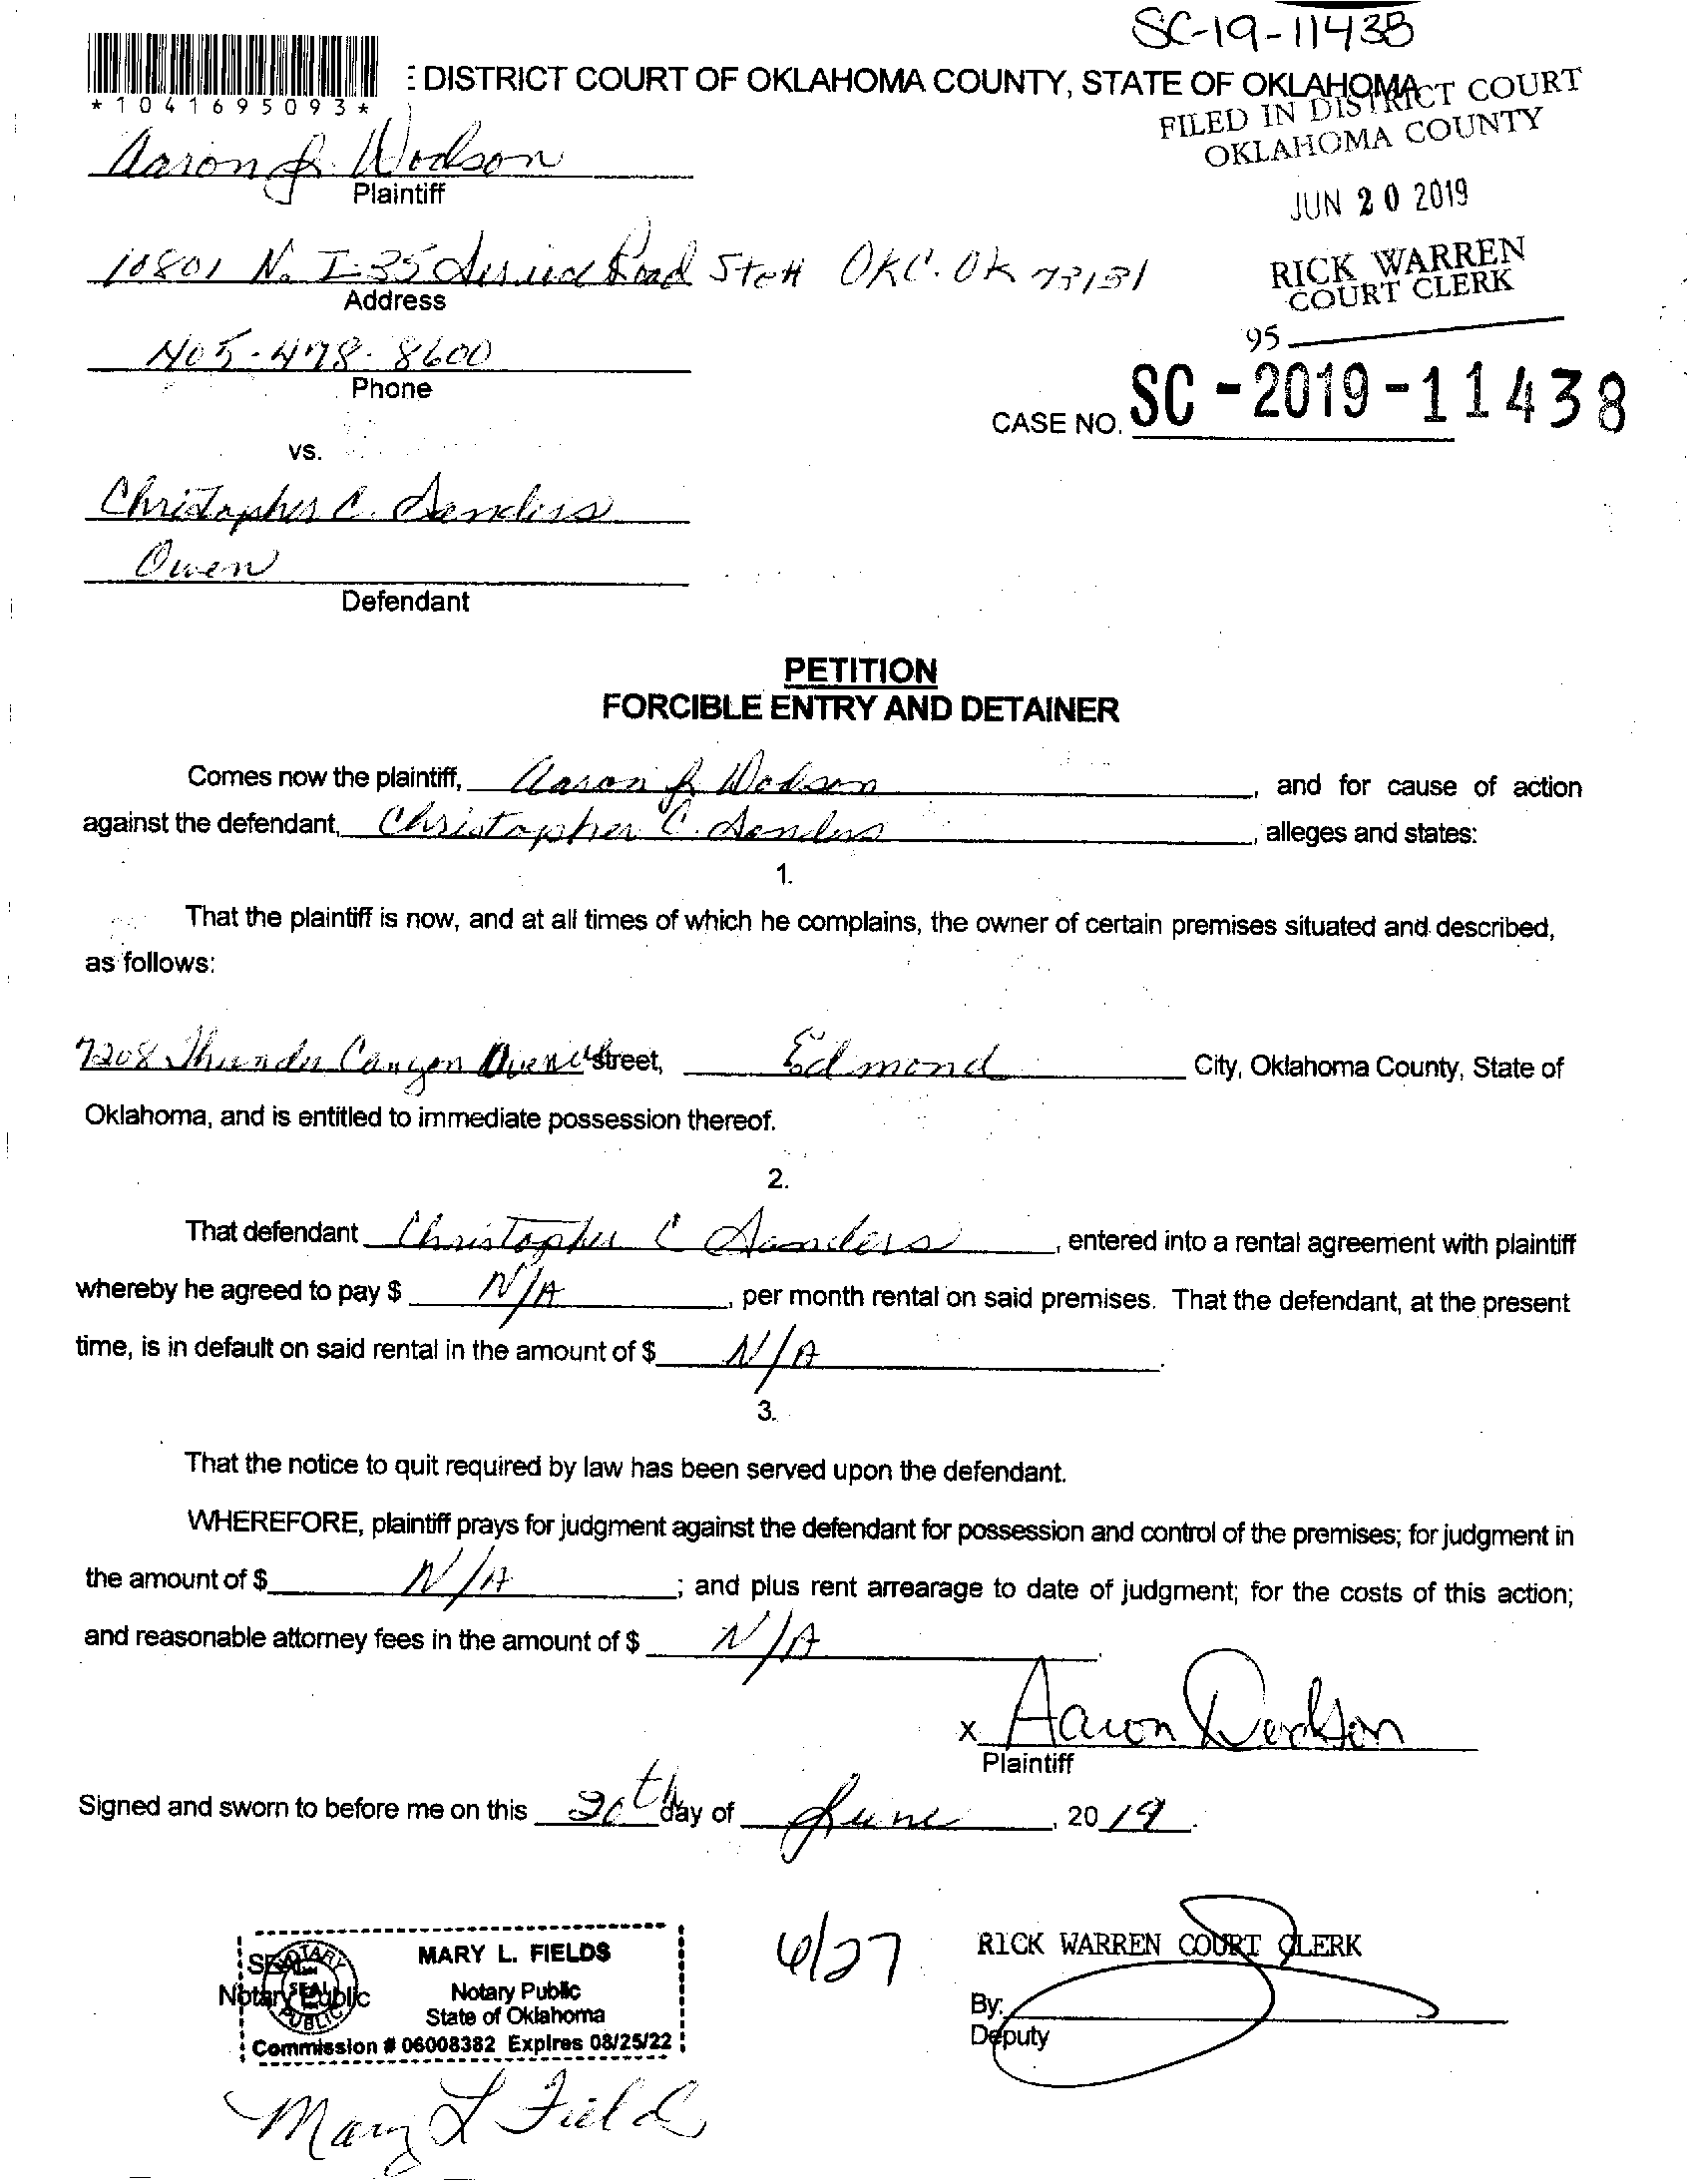 SC-19-11438
*1041695093*
E DISTRICT COURT OF OKLAHOMA COUNTY, STATE OF OKLAHOMA
FILED IN DISTRICT COURT
OKLAHOMA COUNTY
Aaron J. Dodson
Plaintiff
JUN 20 2019
10801 N. I-35 Service Road Ste H OKC. OK 73131
Address
RICK WARREN
COURT CLERK
405-478-8600
Phone
95
CASE NO. SC-2019-11438
vs.
Christopher C. Sanders
Owen
Defendant
PETITION
FORCIBLE ENTRY AND DETAINER
Comes now the plaintiff, Aaron J. Dodson, and for cause of action
against the defendant, Christopher C. Sanders, alleges and states:
1.
That the plaintiff is now, and at all times of which he complains, the owner of certain premises situated and described,
as follows:
7208 Thunder Canyon Avenue street, Edmond City, Oklahoma County, State of
Oklahoma, and is entitled to immediate possession thereof.
2.
That defendant Christopher C Sanders, entered into a rental agreement with plaintiff
whereby he agreed to pay $ N/A, per month rental on said premises. That the defendant, at the present
time, is in default on said rental in the amount of $ N/A.
3.
That the notice to quit required by law has been served upon the defendant.
WHEREFORE, plaintiff prays for judgment against the defendant for possession and control of the premises; for judgment in
the amount of $ N/A; and plus rent arrearage to date of judgment; for the costs of this action;
and reasonable attorney fees in the amount of $ N/A.
x Aaron Dodson
Plaintiff
Signed and sworn to before me on this 20th day of June, 2019.
SEAL
Notary Public
NOTARY
SEAL
PUBLIC
MARY L. FIELDS
Notary Public
State of Oklahoma
Commission # 06008382 Expires 08/25/22
6/27
RICK WARREN COURT CLERK
By:
Deputy
Mary L Fields